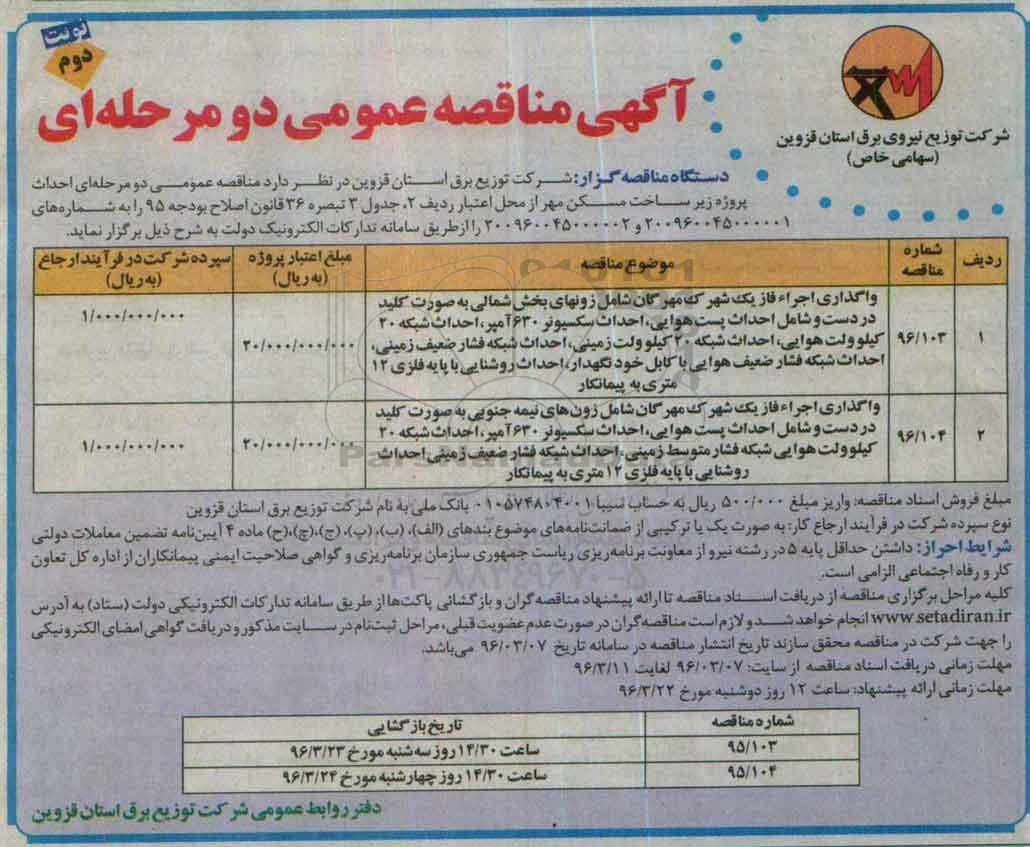 نوبت
دوم
آگهی مناقصه عمومی دو مرحله‌ای
شرکت توزیع نیروی برق استان قزوین
(سهامی خاص)
دستگاه مناقصه گزار: شرکت توزیع برق استان قزوین در نظر دارد مناقصه عمومی دو مرحله‌ای احداث
پروژه زیر ساخت مسکن مهر از محل اعتبار ردیف ۲، جدول ۳ تبصره ۳۶ قانون اصلاح بودجه ۹۵ را به شماره‌های
۲۰۰۹۶۰۰۴۵۰۰۰۰۰۱ و ۲۰۰۹۶۰۰۴۵۰۰۰۰۰۲ را از طریق سامانه تدارکات الکترونیک دولت به شرح ذیل برگزار نماید.
ردیف
شماره مناقصه
موضوع مناقصه
مبلغ اعتبار پروژه (به ریال)
سپرده شرکت در فرآیند ارجاع (به ریال)
۱
۹۶/۱۰۳
واگذاری اجراء فاز یک شهرک مهرگان شامل زونهای بخش شمالی به صورت کلید
در دست و شامل احداث پست هوایی، احداث سکسیونر ۶۳۰ آمپر، احداث شبکه ۲۰
کیلو ولت هوایی، احداث شبکه ۲۰ کیلو ولت زمینی، احداث شبکه فشار ضعیف زمینی،
احداث شبکه فشار ضعیف هوایی با کابل خود نگهدار، احداث روشنایی با پایه فلزی ۱۲
متری به پیمانکار
۲۰/۰۰۰/۰۰۰/۰۰۰
۱/۰۰۰/۰۰۰/۰۰۰
۲
۹۶/۱۰۴
واگذاری اجراء فاز یک شهرک مهرگان شامل زون های نیمه جنوبی به صورت کلید
در دست و شامل احداث پست هوایی، احداث سکسیونر ۶۳۰ آمپر، احداث شبکه ۲۰
کیلو ولت هوایی شبکه فشار متوسط زمینی، احداث شبکه فشار ضعیف زمینی احداث
روشنایی با پایه فلزی ۱۲ متری به پیمانکار
۲۰/۰۰۰/۰۰۰/۰۰۰
۱/۰۰۰/۰۰۰/۰۰۰
مبلغ فروش اسناد مناقصه: واریز مبلغ ۵۰۰/۰۰۰ ریال به حساب سیبا ۰۱۰۵۷۴۸۰۴۰۰۱ بانک ملی به نام شرکت توزیع برق استان قزوین
نوع سپرده شرکت در فرآیند ارجاع کار: به صورت یک یا ترکیبی از ضمانت‌نامه‌های موضوع بندهای (الف)، (ب)، (پ)، (ج)، (چ)، (ح) ماده ۴ آیین‌نامه تضمین معاملات دولتی
شرایط احراز: داشتن حداقل پایه ۵ در رشته نیرو از معاونت برنامه‌ریزی ریاست جمهوری سازمان برنامه‌ریزی و گواهی صلاحیت ایمنی پیمانکاران از اداره کل تعاون
کار و رفاه اجتماعی الزامی است.
کلیه مراحل برگزاری مناقصه از دریافت اسناد مناقصه تا ارائه پیشنهاد مناقصه‌گران و بازگشائی پاکت‌ها از طریق سامانه تدارکات الکترونیکی دولت (ستاد) به آدرس
www.setadiran.ir انجام خواهد شد و لازم است مناقصه‌گران در صورت عدم عضویت قبلی، مراحل ثبت‌نام در سایت مذکور و دریافت گواهی امضای الکترونیکی
را جهت شرکت در مناقصه محقق سازند تاریخ انتشار مناقصه در سامانه تاریخ ۹۶/۰۳/۰۷ می‌باشد.
مهلت زمانی دریافت اسناد مناقصه از سایت: ۹۶/۰۳/۰۷ لغایت ۹۶/۳/۱۱
مهلت زمانی ارائه پیشنهاد: ساعت ۱۲ روز دوشنبه مورخ ۹۶/۳/۲۲
شماره مناقصه
تاریخ بازگشایی
۹۵/۱۰۳
ساعت ۱۴/۳۰ روز سه‌شنبه مورخ ۹۶/۳/۲۳
۹۵/۱۰۴
ساعت ۱۴/۳۰ روز چهارشنبه مورخ ۹۶/۳/۲۴
دفتر روابط عمومی شرکت توزیع برق استان قزوین
۰۲۱-۸۸۳۴۹۶۷۰-۵